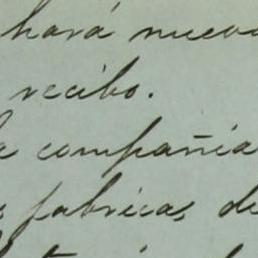 hará nuevo
recibo.
la compañía
fabrica, de